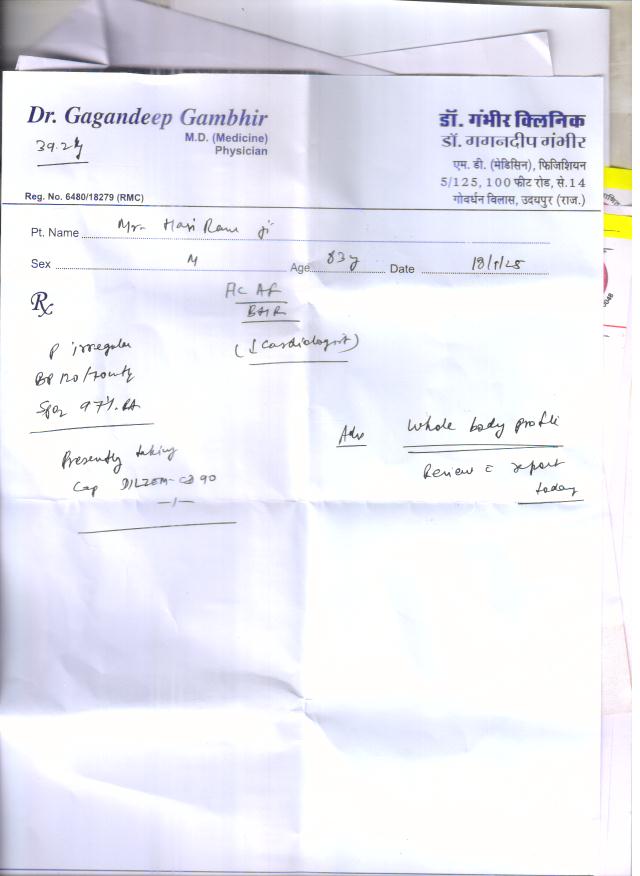 Dr. Gagandeep Gambhir
M.D. (Medicine)
Physician
Reg. No. 6480/18279 (RMC)
डॉ. गंभीर क्लिनिक
डॉ. गगनदीप गंभीर
एम. डी. (मेडिसिन), फिजिशियन
5/125, 100 फीट रोड, से. 14
गोवर्धन विलास, उदयपुर (राज.)
Pt. Name Mr. Hari Ram ji
Sex M Age 83y Date 18/1/25
Rx
AF
(Cardiologist)
P irregular
BP
97%. RA
Presently taking
Cap DILZEM-CD 90
—/—
Adv Whole body profile
Review c report
today